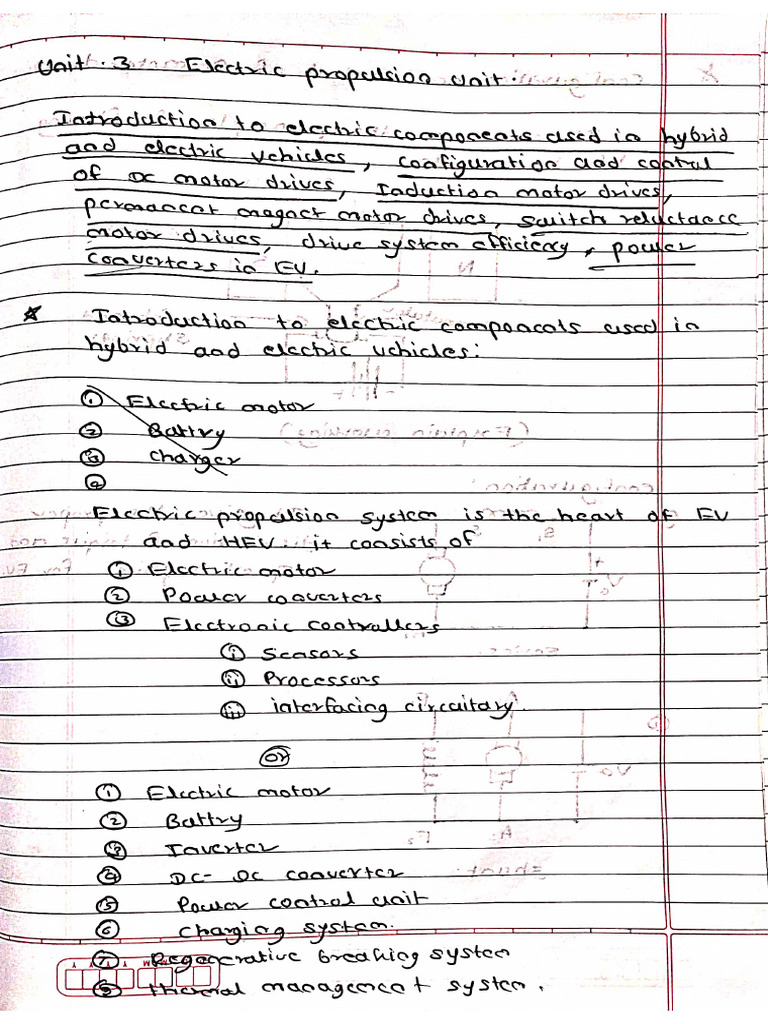 Unit. 3 Electric propulsion unit.
Introduction to electric components used in hybrid
and electric vehicles, configuration and control
of DC motor drives, Induction motor drives,
permanent magnet motor drives, switch reluctance
motor drives, drive system efficiency, power
converters in EV.
* Introduction to electric components used in
hybrid and electric vehicles:
① Electric motor
② Battry
③ charger
④
Electric propulsion system is the heart of EV
and HEV. it consists of
① Electric motor
② Power converters
③ Electronic controllers
ⓘ Sensors
ⅱ Processors
ⅲ interfacing circuitary.
or
① Electric motor
② Battry
③ Inverter
④ DC-DC converter
⑤ Power control unit
⑥ Charging system.
⑦ Regenerative breaking system
⑧ thermal management system.